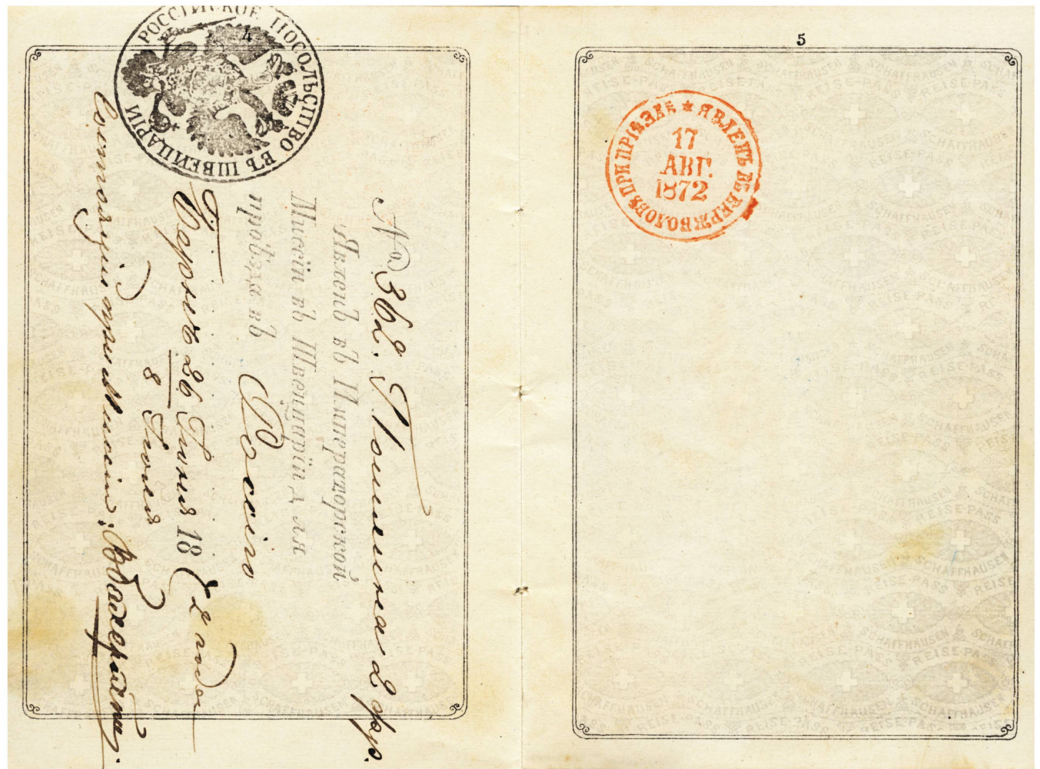 4
РОССІЙСКОЕ ПОСОЛЬСТВО ВЪ ШВЕЙЦАРІИ
№ 362. Пошлина 2 фр.
Явленъ въ Императорской
Миссіи въ Швейцаріи для
проѣзда въ Россію
Бернъ 26 Іюня 1872 года
8 Іюля
Состоящій при Миссіи:
5
ЯВЛЕНЪ ВЪ ВЕРЖБОЛОВѢ ПРИ ПРІѢЗДѢ
17
АВГ.
1872
SCHAFFHAUSEN
REISE-PASS